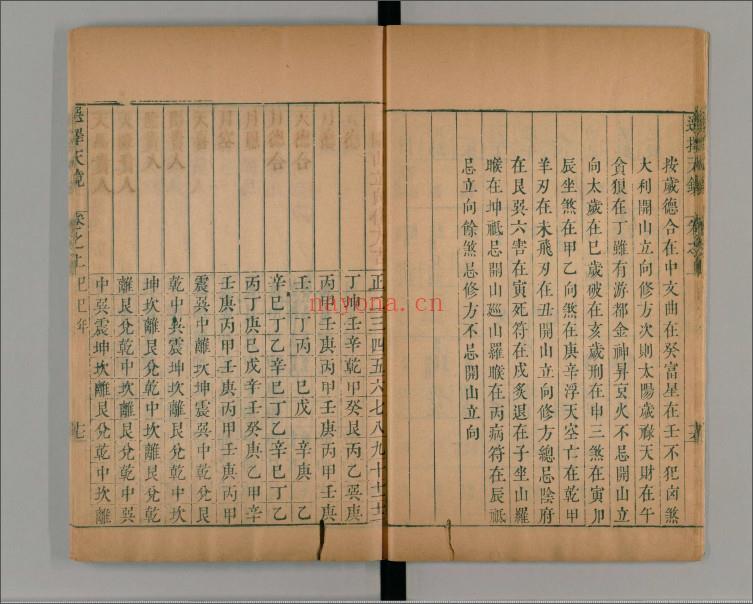 選擇天鏡
按歲德合在中文曲在癸富星在壬不犯凶煞
大利開山立向修方次則太陽歲祿天財在午
貪狼在丁雖有游都金神昇玄火不忌開山立
向太歲在巳歲破在亥歲刑在申三煞在寅卯
辰坐煞在甲乙向煞在庚辛浮天空亡在乾甲
羊刃在未飛刃在丑開山立向修方總忌陰府
在艮巽六害在寅死符在戌炙退在子坐山羅
㬋在坤祗忌開山廵山羅㬋在丙病符在辰祗
忌立向餘煞忌修方不忌開山立向
正二三四五六七八九十十一十二
丁坤壬辛乾甲癸艮丙乙巽庚
月德 丙甲壬庚丙甲壬庚丙甲壬庚
天德合 壬 丁丙 巳戊 辛庚 乙
月德合 辛巳丁乙辛巳丁乙辛巳丁乙
月恩 丙丁庚巳戊辛壬癸庚乙甲辛
月空 壬庚丙甲壬庚丙甲壬庚丙甲
震巽中離坎坤震巽中乾兌艮
貴人 乾中巽震坤坎離艮兌乾中坎
貴人 坤坎離艮兌乾中坎離艮兌乾
貴人 離艮兌乾中坎離艮兌乾中巽
貴人 中巽震坤坎離艮兌乾中坎離
選擇天鏡 卷之上 巳巳年
nayona.cn